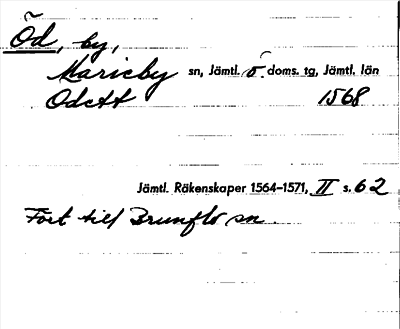 Öd, by,
Marieby sn, Jämtl. ö. doms. tg, Jämtl. län
Odett 1568
Jämtl. Räkenskaper 1564–1571, II s. 62
Fört till Brunflo sn.